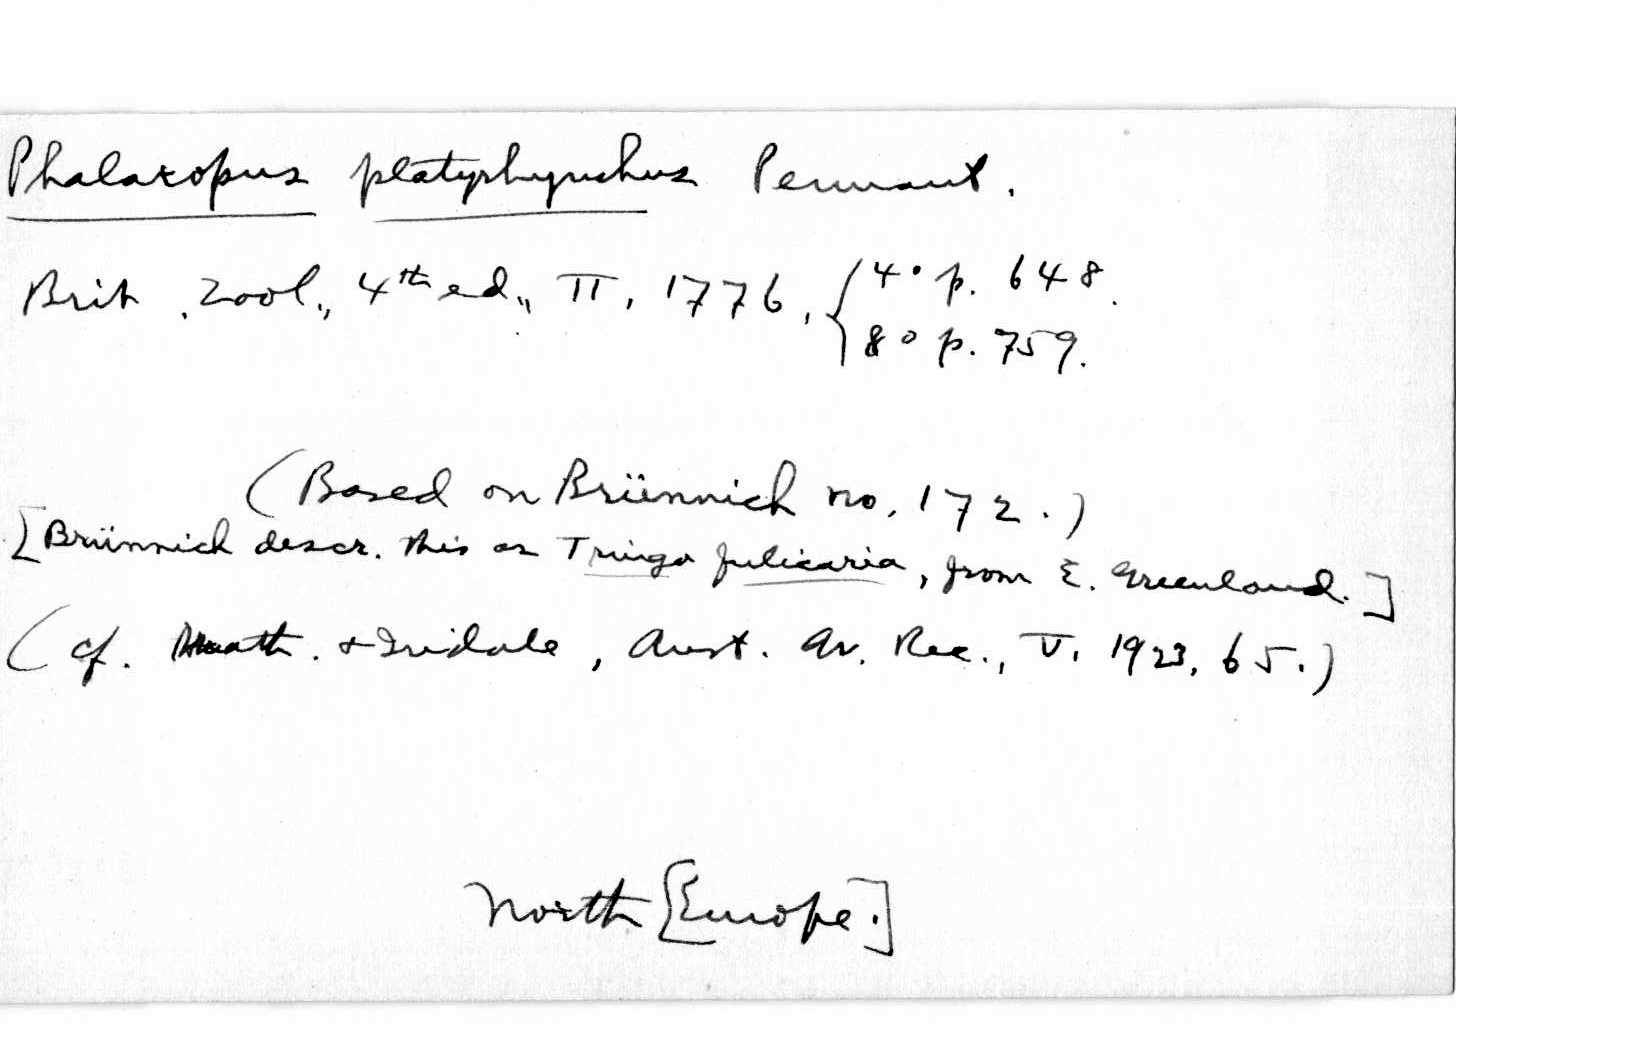 Phalaropus platyrhynchus Pennant.
Brit. Zool., 4th ed., II, 1776, { 4° p. 648.
8° p. 759.
(Based on Brünnich no. 172.)
[Brünnich descr. this as Tringa fulicaria, from E. Greenland.]
(cf. Math. & Iredale, Aust. Av. Rec., V, 1923, 65.)
North [Europe.]